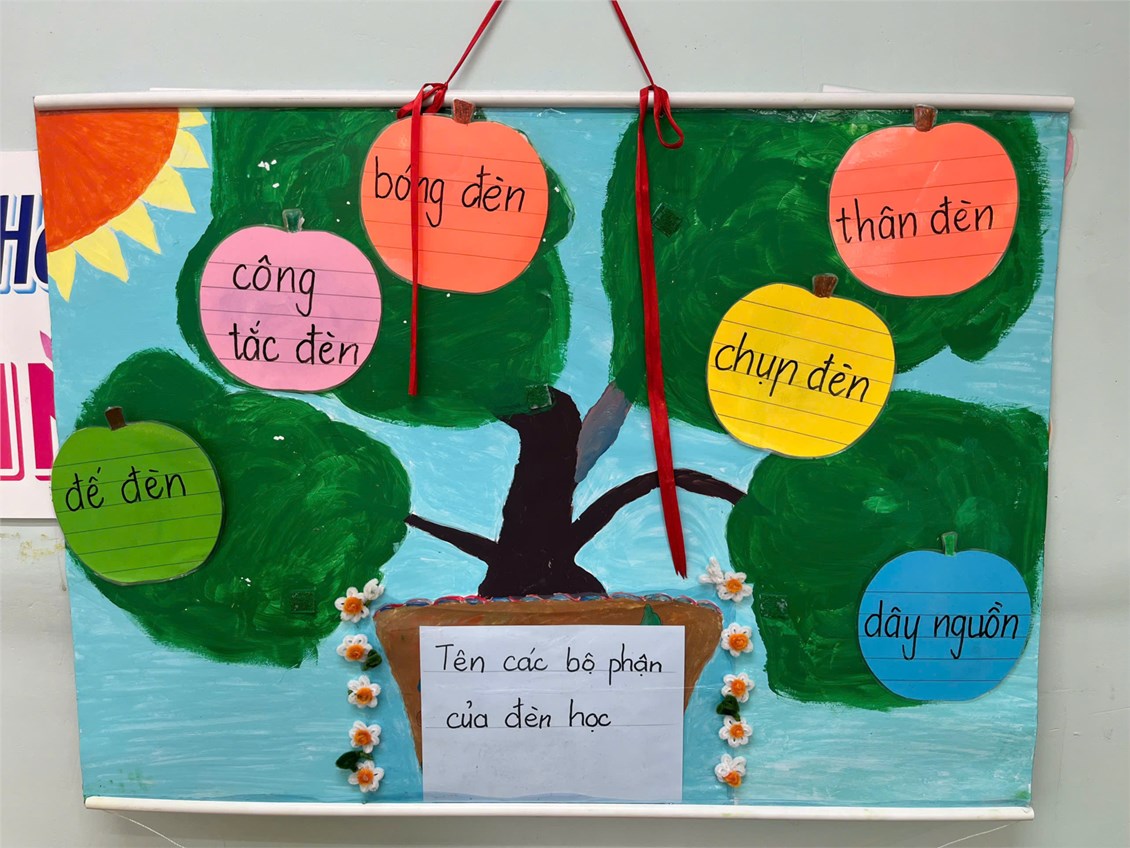 bóng đèn
thân đèn
công
tắc đèn
chụp đèn
đế đèn
dây nguồn
Tên các bộ phận
của đèn học